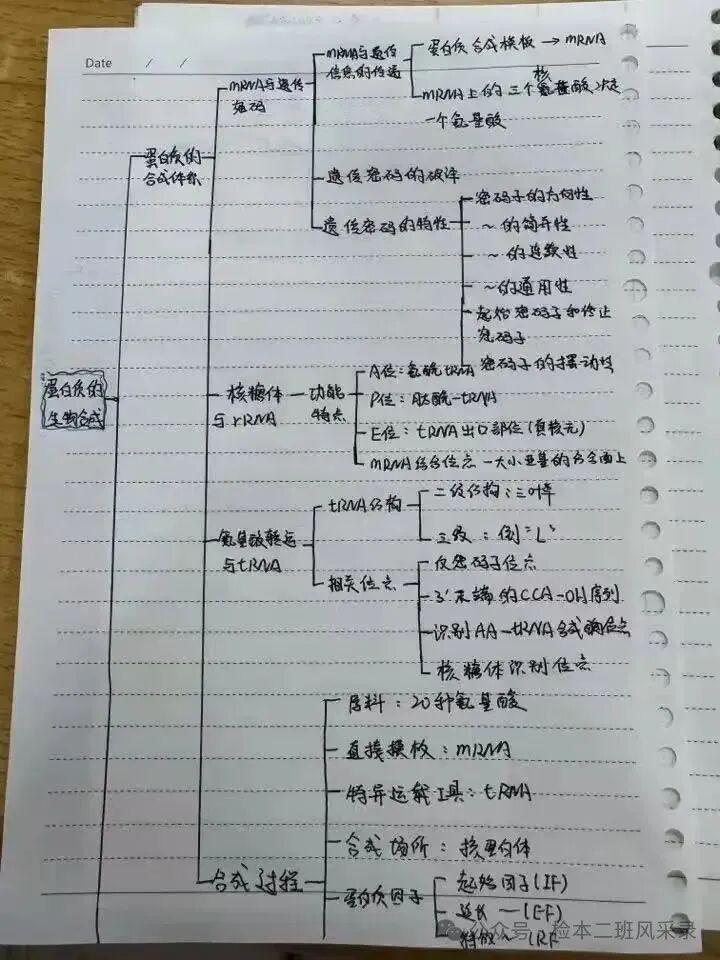 Date / /
mRNA与遗传
信息的传递
蛋白质合成模板 → mRNA
mRNA上的三个核氨酸决定
一个氨基酸
mRNA与遗传
密码
蛋白质的
合成体系
遗传密码的破译
遗传密码的特性
密码子的方向性
~的简并性
~的连续性
~的通用性
起始密码子和终止
密码子
密码子的摆动性
蛋白质的
生物合成
核糖体
与rRNA
功能
特点
A位:氨酰tRNA
P位:肽酰-tRNA
E位:tRNA出口部位(真核无)
mRNA结合位点—大小亚基的结合面上
氨基酸转运
与tRNA
tRNA结构
二级结构:三叶草
三级:倒"L"
相关位点
反密码子位点
3'末端的CCA-OH序列
识别AA-tRNA合成酶位点
核糖体识别位点
合成过程
原料:20种氨基酸
直接模板:mRNA
特异运载工具:tRNA
合成场所:核蛋白体
蛋白质因子
起始因子(IF)
延长—(EF)
释放~(RF
公众号·检本二班风采录